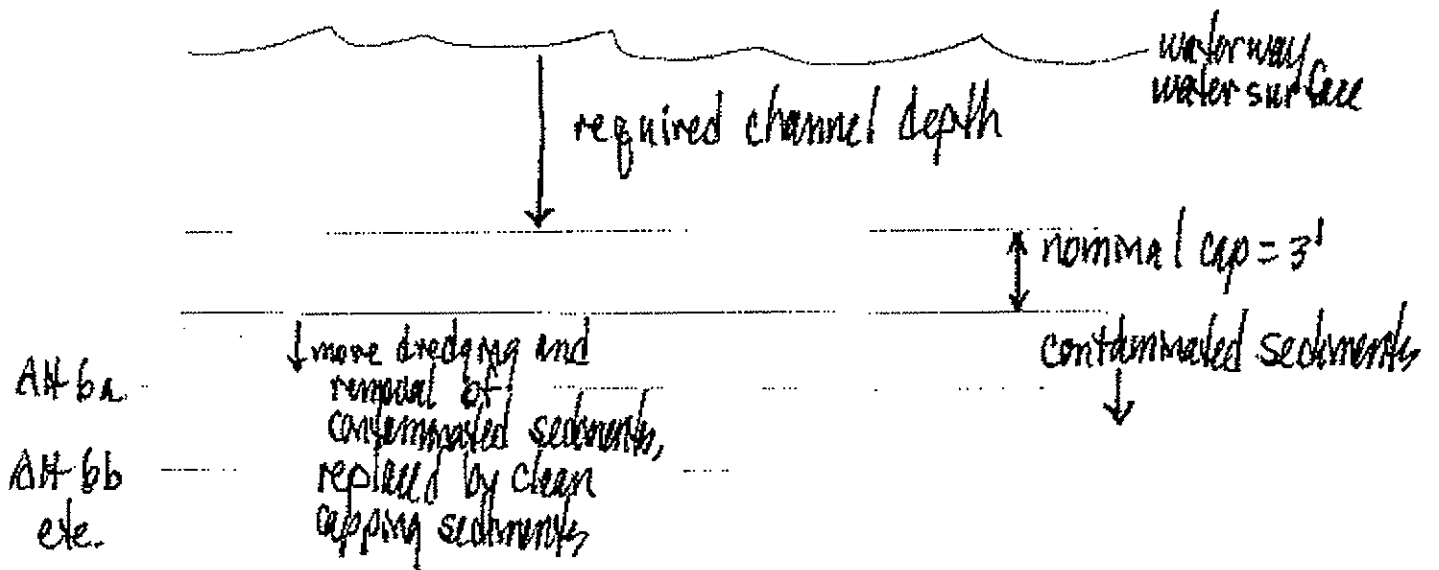 waterway
water surface
required channel depth
nominal cap = 3'
contaminated sediments
more dredging and
removal of
contaminated sediments,
replaced by clean
capping sediments
Alt 6a
Alt 6b
etc.